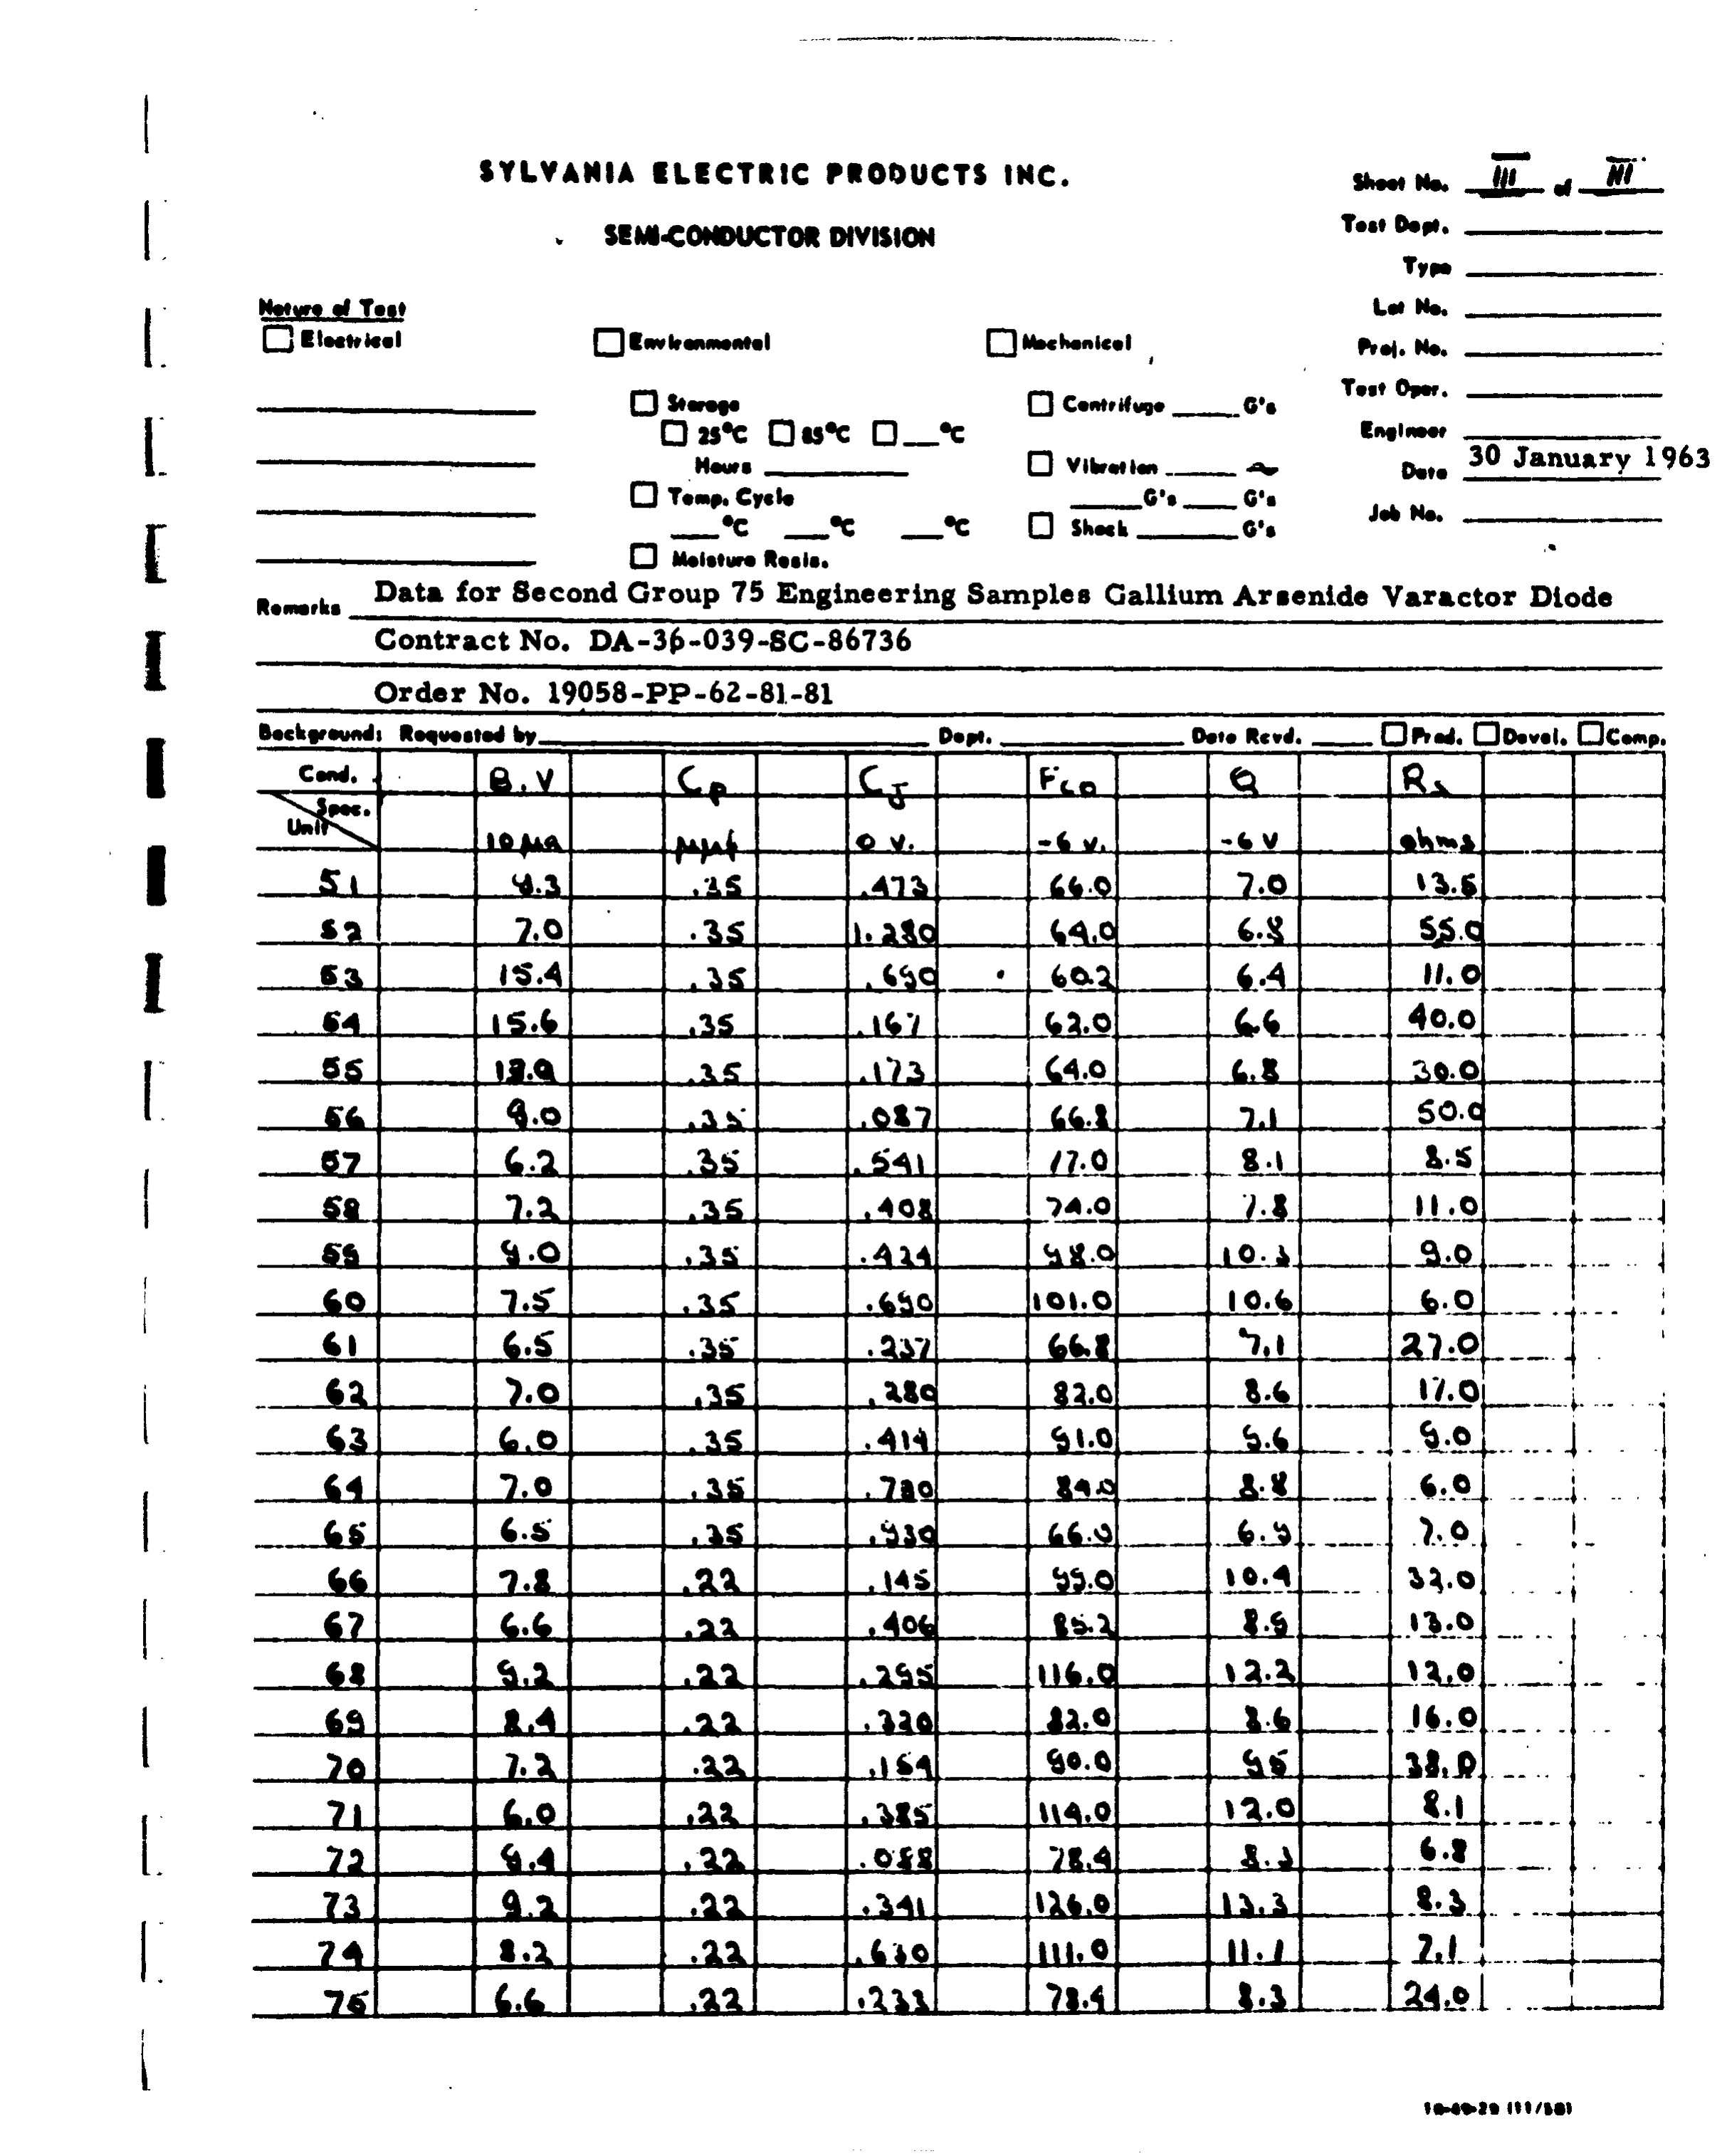 SYLVANIA ELECTRIC PRODUCTS INC.
SEMI-CONDUCTOR DIVISION
Sheet No. III of III
Test Dept.
Type
Lot No.
Proj. No.
Test Oper.
Engineer
Date 30 January 1963
Job No.
Nature of Test
Electrical Environmental Mechanical
Storage Centrifuge G's
25°C 85°C °C
Hours Vibration ~
Temp. Cycle G's G's
°C °C °C Shock G's
Moisture Resis.
Remarks Data for Second Group 75 Engineering Samples Gallium Arsenide Varactor Diode
Contract No. DA-36-039-SC-86736
Order No. 19058-PP-62-81-81
Background: Requested by Dept. Date Rcvd. Prod. Devel. Comp.
Cond. B.V Cp CJ Fco Q Rs
Spec.
Unit 10 μa μμf 0 v. -6 v. -6 V ohms
51 .35 .473 66.0 7.0 13.5
52 7.0 .35 1.280 64.0 6.8 55.0
53 15.4 .35 .690 60.2 6.4 11.0
54 15.6 .35 .167 62.0 6.6 40.0
55 .35 .173 64.0 6.8 30.0
56 9.0 .35 .087 66.8 7.1 50.0
57 6.2 .35 .541 77.0 8.1 8.5
58 7.2 .35 .408 74.0 7.8 11.0
59 9.0 .35 .424 98.0 10.3 9.0
60 7.5 .35 .690 101.0 10.6 6.0
61 6.5 .35 .237 66.8 7.1 27.0
62 7.0 .35 .280 82.0 8.6 17.0
63 6.0 .35 .414 91.0 9.6 9.0
64 7.0 .35 .780 84.0 8.8 6.0
65 6.5 .35 .930 66.0 6.9 7.0
66 7.8 .22 .145 99.0 10.4 32.0
67 6.6 .22 .406 85.2 8.9 13.0
68 9.2 .22 .295 116.0 12.2 12.0
69 8.4 .22 .320 82.0 8.6 16.0
70 7.2 .22 .154 90.0 95 38.0
71 6.0 .22 .385 114.0 12.0 8.1
72 9.4 .22 .088 78.4 8.3 6.8
73 9.2 .22 .341 126.0 13.3 8.3
74 8.2 .22 .630 111.0 11.1 7.1
75 6.6 .22 .233 78.4 8.3 24.0
10-49-29 (11/58)